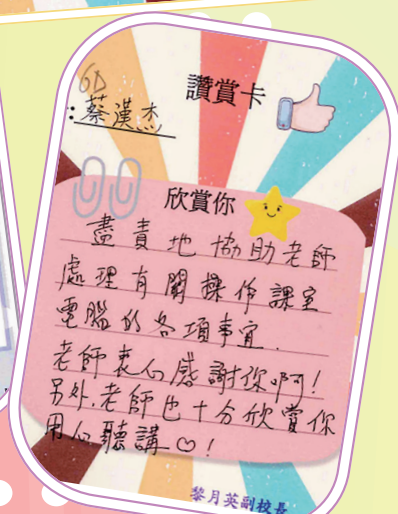 6D
讚賞卡
：蔡漢杰
欣賞你
盡責地協助老師
處理有關操作課室
電腦的各項事宜.
老師衷心感謝你啊!
另外,老師也十分欣賞你
用心聽講♡!
黎月英副校長